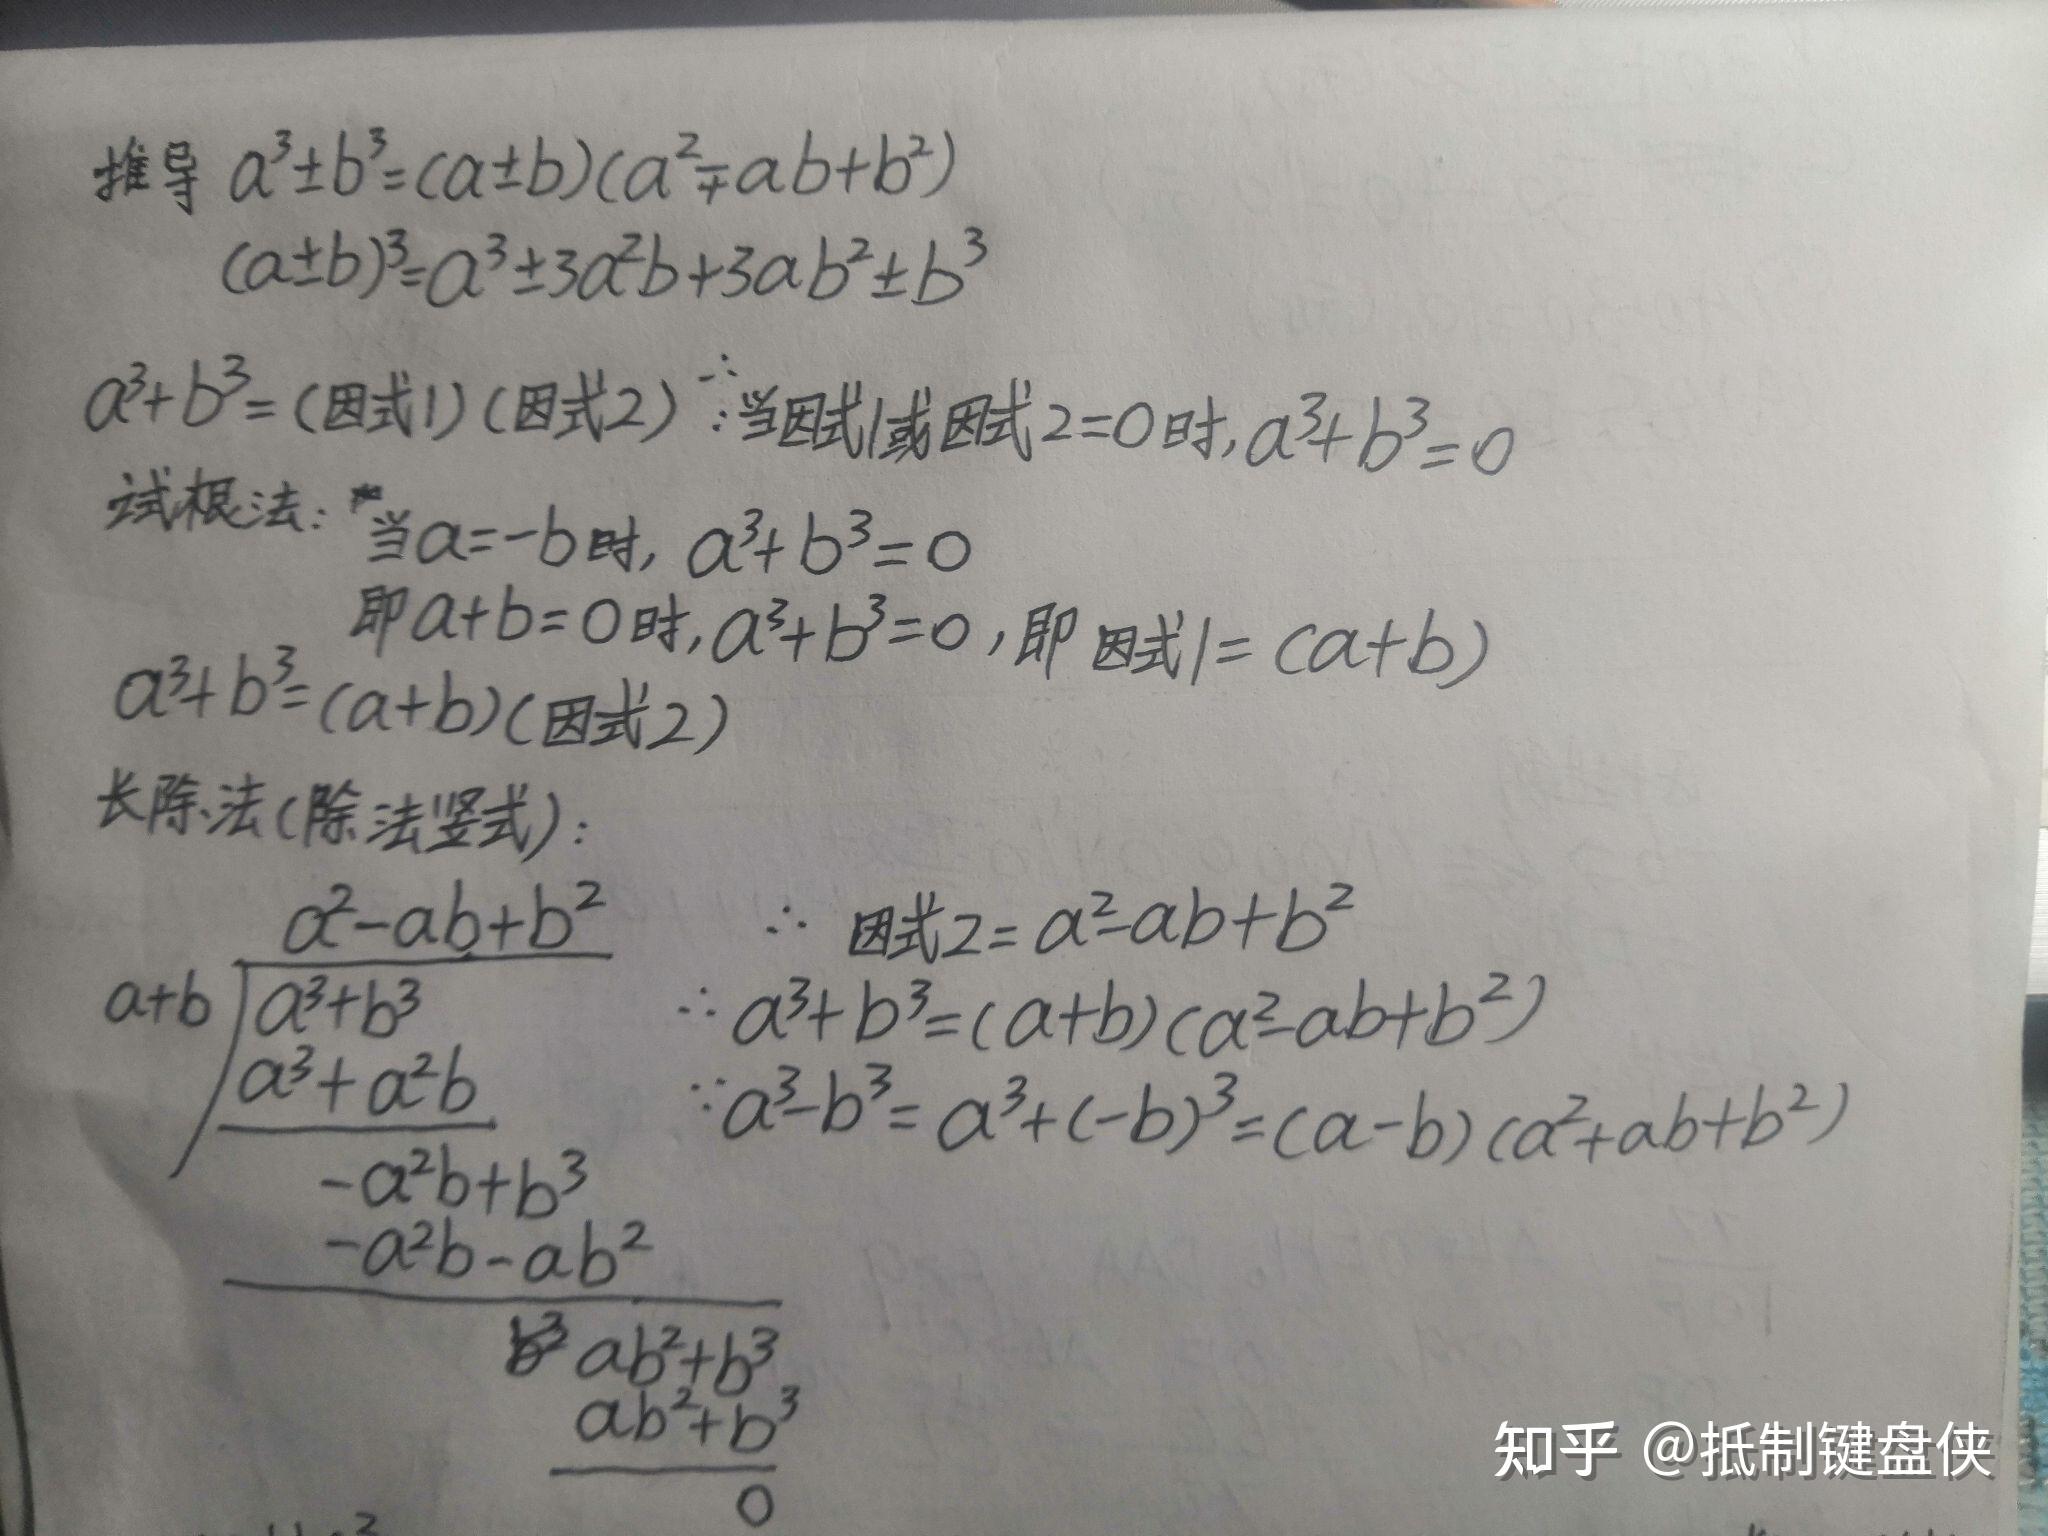 推导 a³±b³=(a±b)(a²∓ab+b²)
(a±b)³=a³±3a²b+3ab²±b³
a³+b³=(因式1)(因式2) ∵当因式1或因式2=0时,a³+b³=0
试根法: 当a=-b时, a³+b³=0
即a+b=0时,a³+b³=0,即因式1=(a+b)
a³+b³=(a+b)(因式2)
长除法(除法竖式):
a²-ab+b²
a+b
a³+b³
a³+a²b
-a²b+b³
-a²b-ab²
ab²+b³
ab²+b³
0
∴ 因式2=a²-ab+b²
∴a³+b³=(a+b)(a²-ab+b²)
∵a³-b³=a³+(-b)³=(a-b)(a²+ab+b²)
知乎 @抵制键盘侠